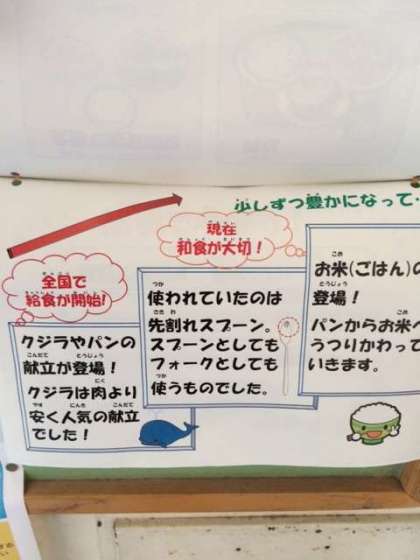 少しずつ豊かになって・
現在
和食が大切!
全国で
給食が開始!
クジラやパンの
献立が登場!
クジラは肉より
安く人気の献立
でした!
使われていたのは
先割れスプーン。
スプーンとしても
フォークとしても
使うものでした。
お米(ごはん)の
登場!
パンからお米へ
うつりかわって
いきます。